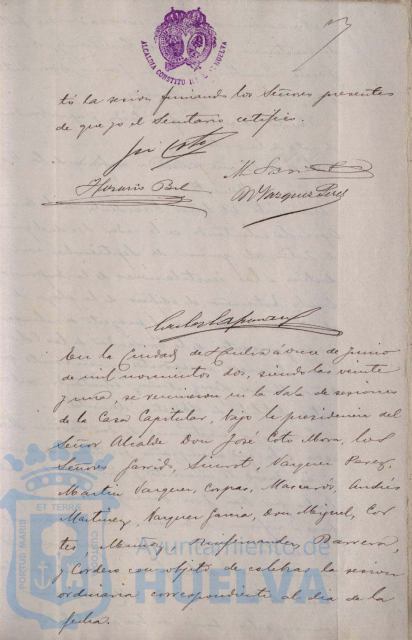 ALCALDIA CONSTITU HUELVA
tó la sesion firmando los Señores presentes
de que yo el Secretario certifico.
José Coto
Horacio Bel
M
A Vazquez Perez
En la Ciudad de Huelva á once de Junio
de mil novecientos dos, siendo las veinte
y una, se reunieron en la Sala de sesiones
de la Casa Capitular, bajo la presidencia del
Señor Alcalde Don José Coto Mora, los
Señores Garrido, Siurot, Vazquez Perez,
Martin Vazquez, Corpas, Mascarós, Andrés
Martinez, Vazquez Garcia, Don Miguel, Cor
tes, Muñoz, Barrera,
y Cordero con objeto de celebrar la sesion
ordinaria correspondiente al dia de la
fecha.
PORTUS MARIS ET TERRE CUSTODIA
Ayuntamiento de
HUELVA